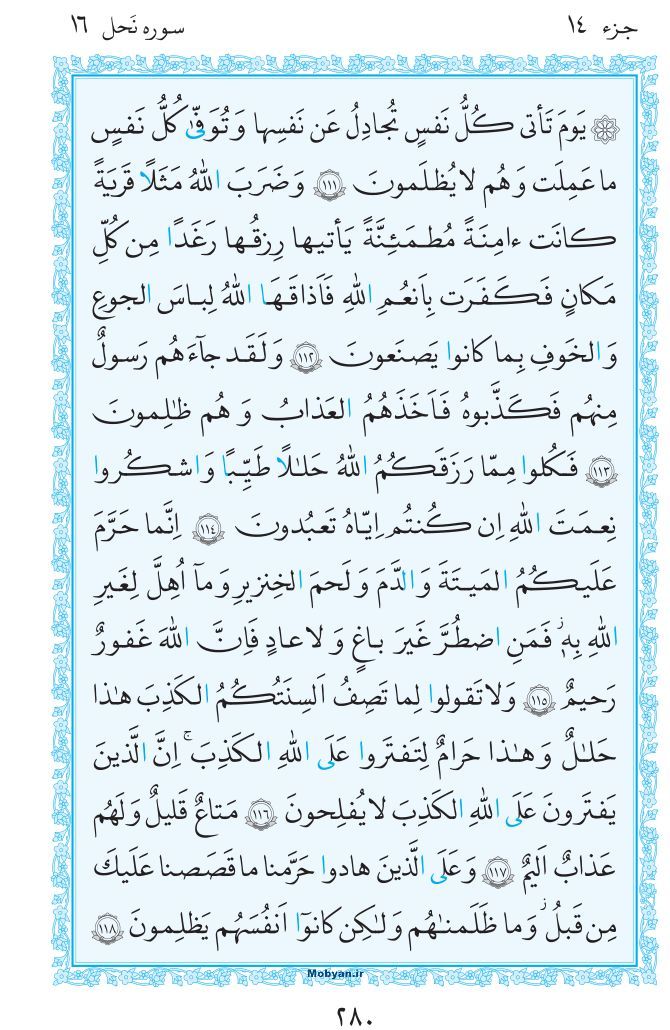 جزء ۱۴
سوره نَحل ۱۶
۞ يَومَ تَأتى كُلُّ نَفسٍ تُجادِلُ عَن نَفسِها وَ تُوَفّىٰ كُلُّ نَفسٍ
ما عَمِلَت وَ هُم لا يُظلَمونَ ﴿۱۱۱﴾ وَ ضَرَبَ اللهُ مَثَلًا قَريَةً
كانَت ءامِنَةً مُطمَئِنَّةً يَأتيها رِزقُها رَغَدًا مِن كُلِّ
مَكانٍ فَكَفَرَت بِاَنعُمِ اللهِ فَاَذاقَهَا اللهُ لِباسَ الجوعِ
وَ الخَوفِ بِما كانوا يَصنَعونَ ﴿۱۱۲﴾ وَ لَقَد جآءَهُم رَسولٌ
مِنهُم فَكَذَّبوهُ فَاَخَذَهُمُ العَذابُ وَ هُم ظٰلِمونَ
﴿۱۱۳﴾ فَكُلوا مِمّا رَزَقَكُمُ اللهُ حَلٰلًا طَيِّبًا وَ اشكُروا
نِعمَتَ اللهِ اِن كُنتُم اِيّاهُ تَعبُدونَ ﴿۱۱۴﴾ اِنَّما حَرَّمَ
عَلَيكُمُ المَيتَةَ وَ الدَّمَ وَ لَحمَ الخِنزيرِ وَ مآ اُهِلَّ لِغَيرِ
اللهِ بِهٖ ۖ فَمَنِ اضطُرَّ غَيرَ باغٍ وَ لا عادٍ فَاِنَّ اللهَ غَفورٌ
رَحيمٌ ﴿۱۱۵﴾ وَ لا تَقولوا لِما تَصِفُ اَلسِنَتُكُمُ الكَذِبَ هٰذا
حَلٰلٌ وَ هٰذا حَرامٌ لِتَفتَروا عَلَى اللهِ الكَذِبَ ۚ اِنَّ الَّذينَ
يَفتَرونَ عَلَى اللهِ الكَذِبَ لا يُفلِحونَ ﴿۱۱۶﴾ مَتاعٌ قَليلٌ وَ لَهُم
عَذابٌ اَليمٌ ﴿۱۱۷﴾ وَ عَلَى الَّذينَ هادوا حَرَّمنا ما قَصَصنا عَلَيكَ
مِن قَبلُ ۖ وَ ما ظَلَمنٰهُم وَ لٰكِن كانوٓا اَنفُسَهُم يَظلِمونَ ﴿۱۱۸﴾
Mobyan.ir
۲۸۰